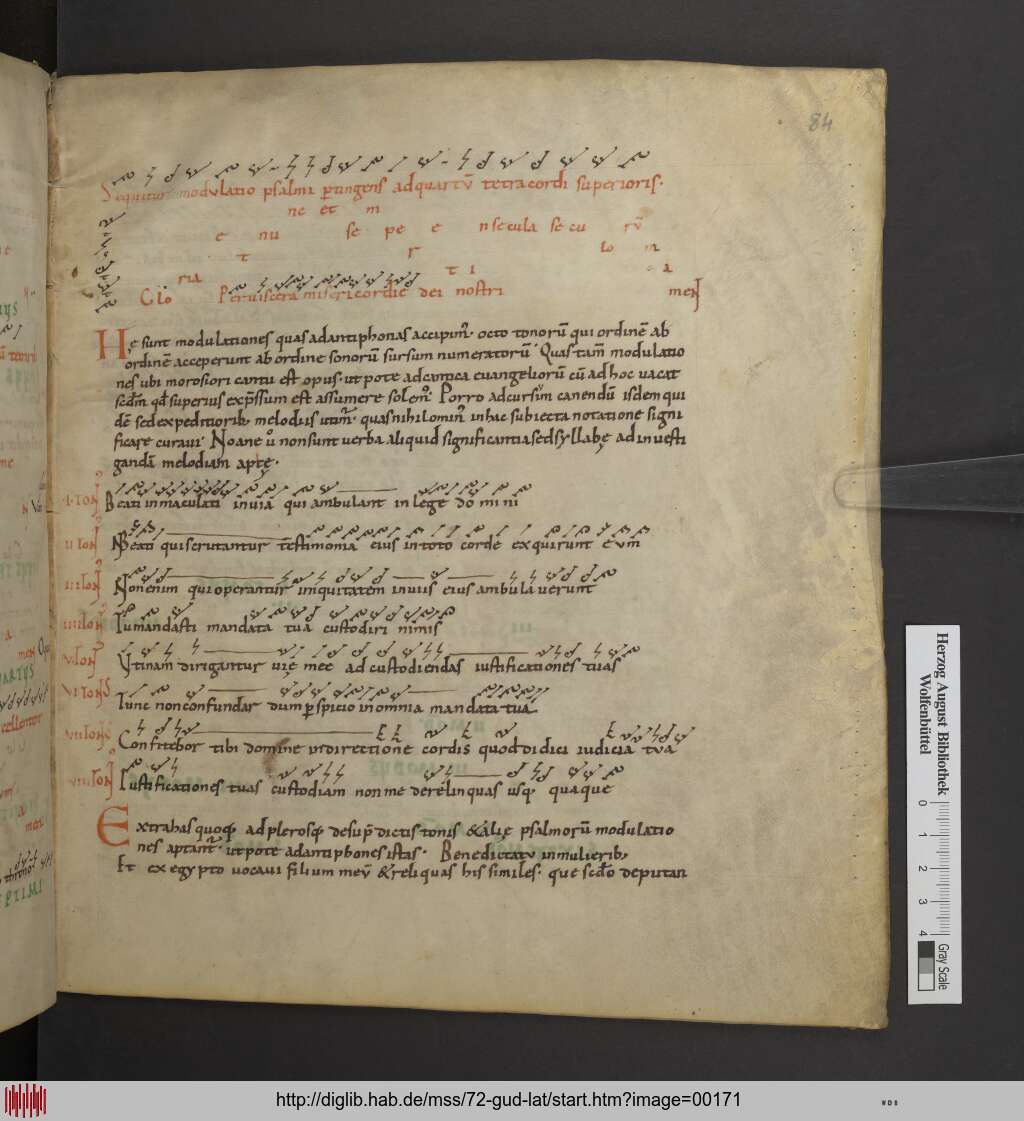 84
Sequitur modulatio psalmi ptingens adquartū tetracordi superioris.
ne et m
e nu se pe e nsecula se cu rū
t r lo n
t i a
Glo ria Peruiscera misericordie dei nostri men
He sunt modulationes quas adantiphonas accipim̄. octo tonorū qui ordinē ab
ordinē acceperunt ab ordine sonorū sursum numeratorū. Quas tam̄ modulatio
nes ubi morosiori cantu est opus. ut pote adcantica euangeliorū cū ad hoc uacat
scd̄m qd̄ superius exp̄ssum est assumere solem̄. Porro adcursim canendū isdem qui
dē sed expeditiorib; melodiis utim̄. quas nihilomin̄ inhac subiecta notatione signi
ficare curaui. Noane ů non sunt uerba aliquid significantia sed syllabę ad inuesti
gandā melodiam aptę.
.I. TON̄ Beati inmaculati in uia qui ambulant in lege do mi ni
II TON̄ Beati qui scrutantur testimonia eius intoto corde exquirunt e um
III TON̄ Non enim qui operantur iniquitatem inuiis eius ambula uerunt
IIII TON̄ Tu mandasti mandata tua custodiri nimis
V TON̄ Utinam dirigantur uię mee ad custodiendas iustificationes tuas
VI TON̄ Tunc non confundar dum pspicio in omnia mandata tua
VII TON̄ Confitebor tibi domine indirectione cordis quod didici iudicia tua
VIII TON̄ Iustificationes tuas custodiam non me derelinquas usq; quaque
Extra has quoq; ad plerosq; de sup̄ dictis tonis & alię psalmorū modulatio
nes aptant̄. ut pote ad antiphones istas. Benedicta tu in mulierib;
Et ex egypto uocaui filium meū & reliquas his similes. que scd̄o deputan
Herzog August Bibliothek
Wolfenbüttel
0 1 2 3 4
Gray Scale
http://diglib.hab.de/mss/72-gud-lat/start.htm?image=00171
WDB